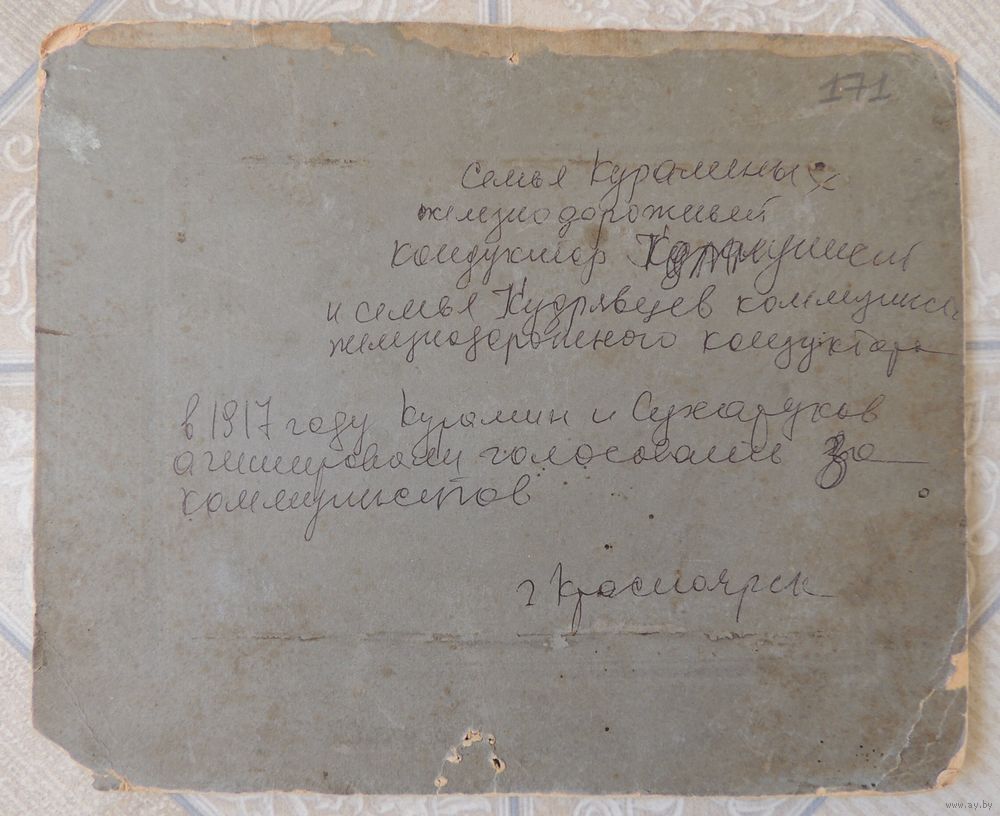 171
семья Курамины х
железнодорожный
кондуктор
и семья Кудрявцев коммунист
железнодорожного кондуктора
в 1917 году Курамин и Сухоруков
агитировали голосовали за
коммунистов
г Красноярск
www.ay.by